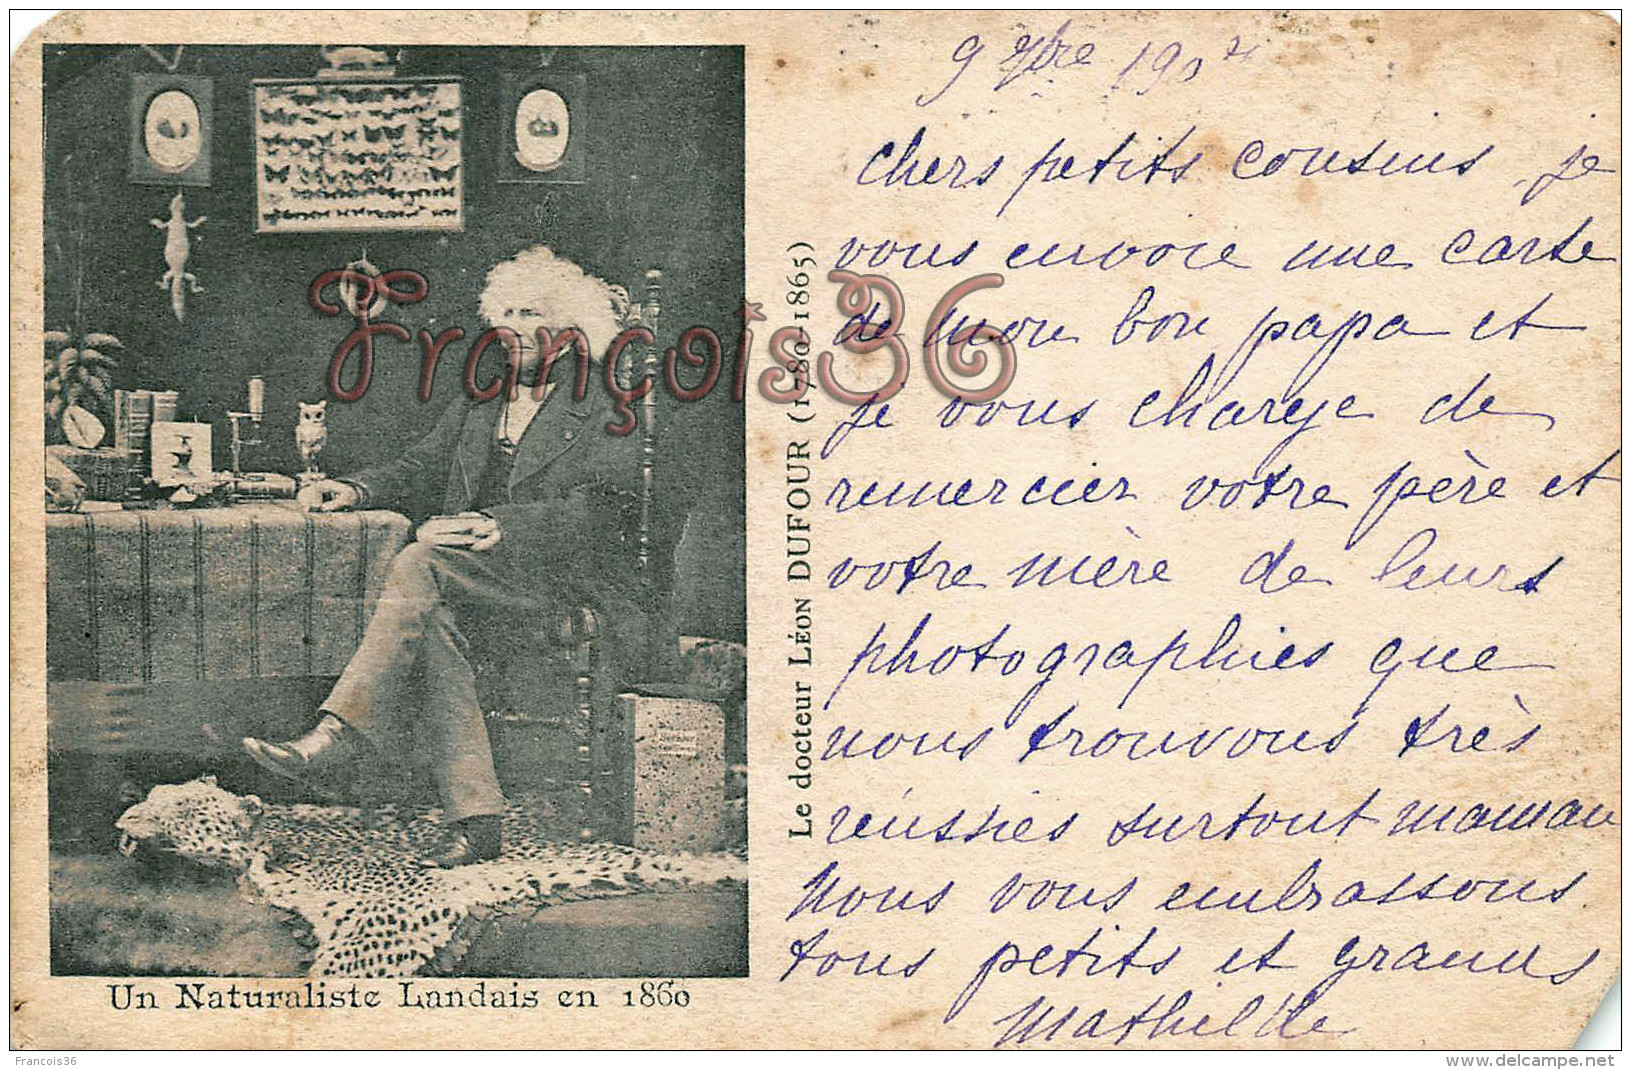 9 7bre 190
chers petits cousins je
vous envoie une carte
de mon bon papa et
je vous charge de
remercier votre père et
votre mère de leurs
photographies que
nous trouvons très
réussies surtout maman
Nous vous embrassons
tous petits et grands
Mathilde
Le docteur LÉON DUFOUR (1780-1865)
Un Naturaliste Landais en 1860
François36
François36
www.delcampe.net